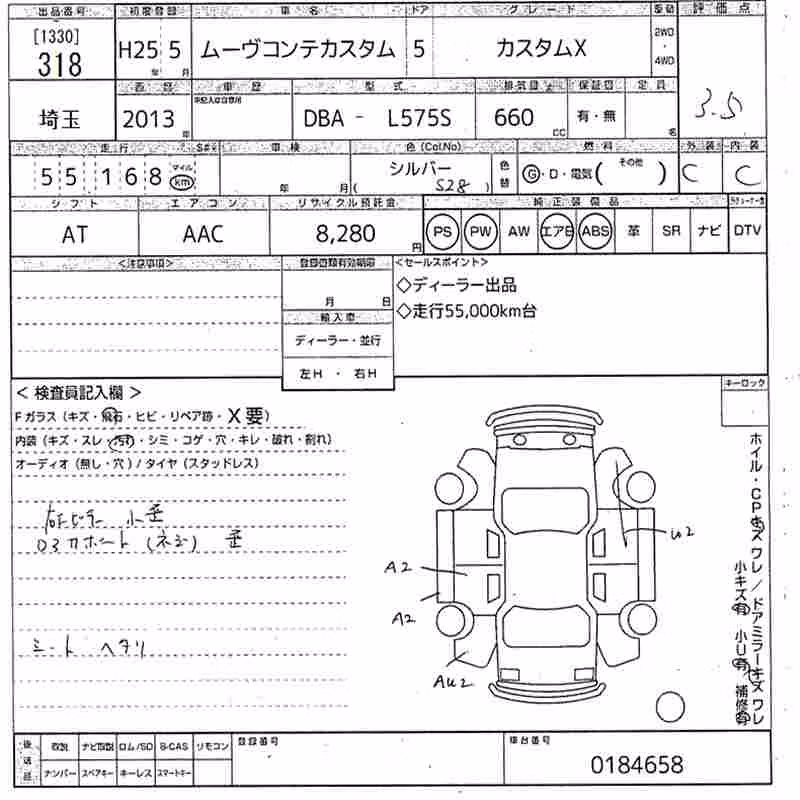 出品番号 初度登録 車名 ドア グレード 駆動 評価点
[1330]
318
H25 5 ムーヴコンテカスタム 5 カスタムX
年 月
2WD
・
4WD
3.5
西暦 車歴 型式 排気量 保証書 定員
未記入は自家用
埼玉 2013 年 DBA - L575S 660 cc 有・無 名
走行 車検 色(Col.No) 燃料 外装 内装
55168 マイル km 年 月 シルバー (S28) 色替 G・D・電気( その他 ) C C
シフト エアコン リサイクル預託金 純正装備品
AT AAC 8,280 円 PS PW AW エアB ABS 革 SR ナビ DTV
<注意事項> 登録書類有効期限 <セールスポイント>
月 日
◇ディーラー出品
◇走行55,000km台
輸入車
ディーラー・並行
左H ・ 右H
キーロック
< 検査員記入欄 >
Fガラス (キズ・飛石・ヒビ・リペア跡・X要)
内装 (キズ・スレ・汚れ・シミ・コゲ・穴・キレ・破れ・割れ)
オーディオ (無し・穴) / タイヤ (スタッドレス)
小歪
(ネジ) 歪
シート ヘタリ
A2
A2
AU2
W2
ホイル・CPキズワレ/ドアミラーキズワレ
小キズ有 小U有 補修有
後送品 取説 ナビ取説 ロム/SD B-CAS リモコン 登録番号 車台番号
ナンバー スペアキー キーレス スマートキー
0184658